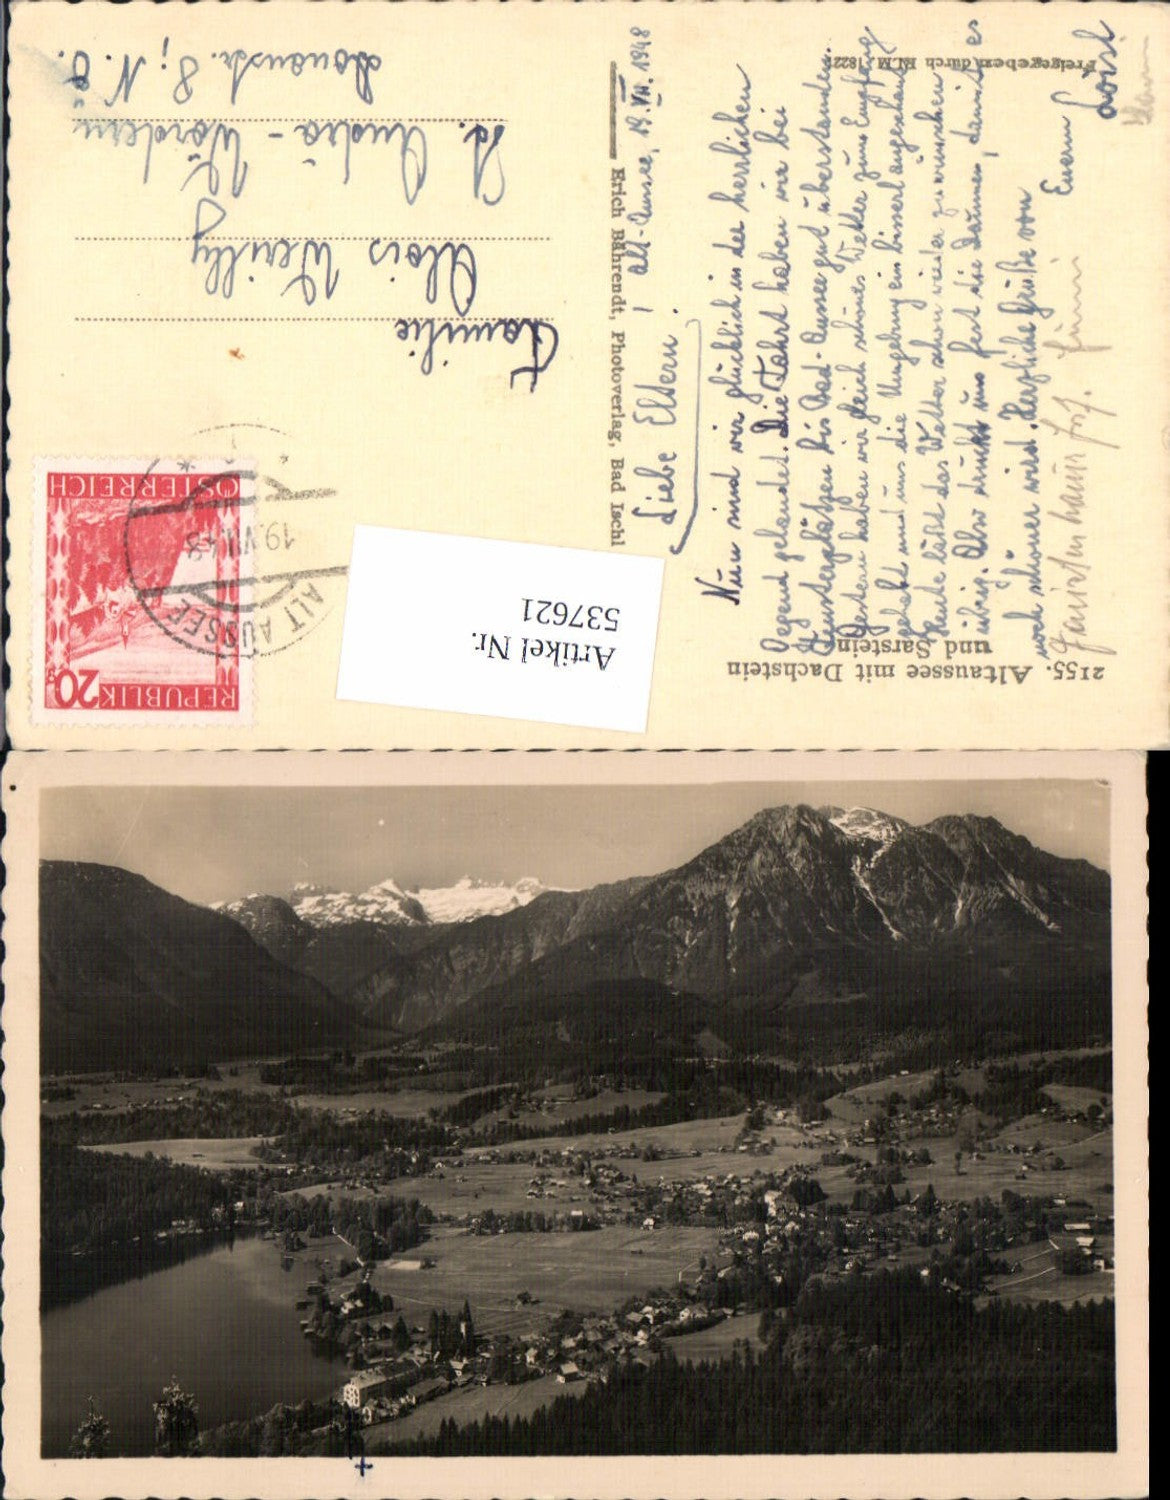 Alt-Aussee, 19. VII. 1948
Liebe Eltern!
Nun sind wir glücklich in der herrlichen
Gegend gelandet. Die Fahrt haben wir bei
bis Bad-Aussee gut überstanden.
Gestern haben wir gleich schönes Wetter zum Empfang
gehabt und uns die Umgebung ein bisserl angeschaut.
Heute läßt das Wetter schon wieder zu wünschen
übrig. Also drückt uns fest die Daumen, damit es
noch schöner wird. Herzliche Grüße von
Euerm Loisl
Familie
Alois
St. Andrä-Wördern
Donaustr. 8; N.Ö.
REPUBLIK
20
ÖSTERREICH
ALT AUSSEE
19.VII.48
Erich Bährendt, Photoverlag, Bad Ischl
2155. Altaussee mit Dachstein
und Sarstein
Freigegeben durch RLM
Artikel Nr.
537621